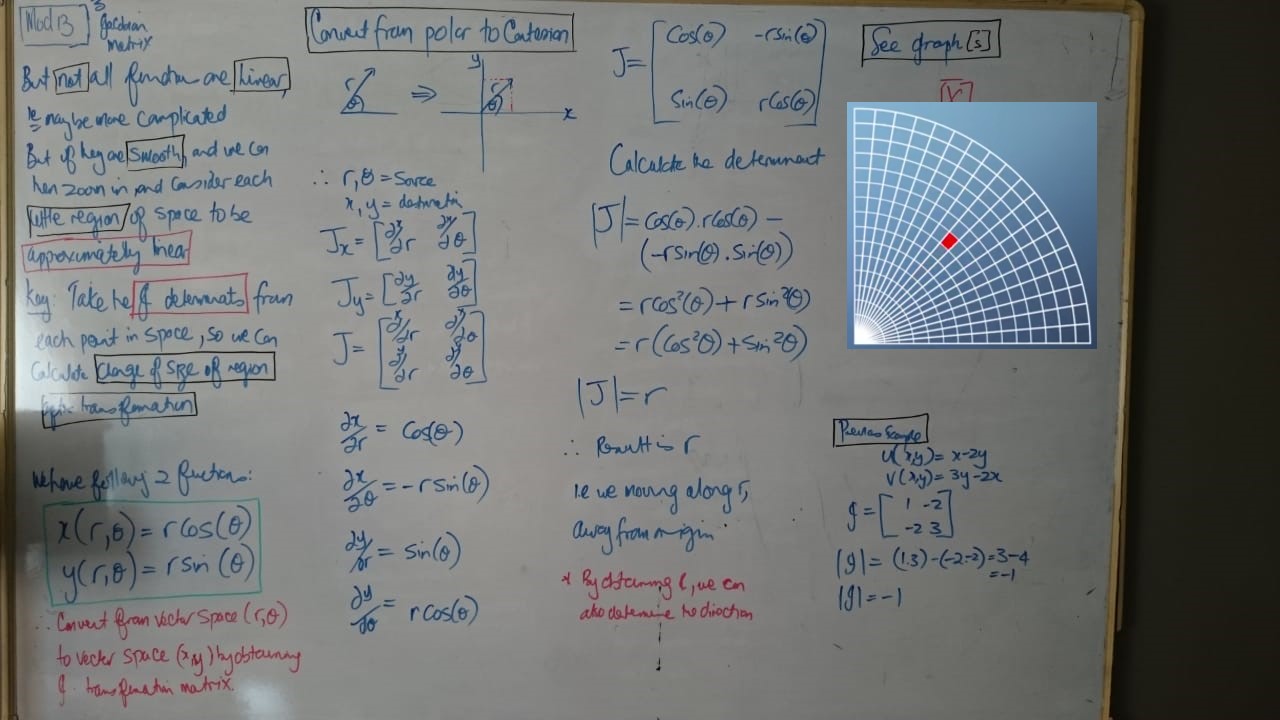 Mod 3
Jacobian
matrix
But not all function are linear,
ie maybe more complicated
But if they are smooth, and we can
then zoom in and consider each
little region of space to be
approximately linear
Key: Take the J determinants from
each point in space, so we can
Calculate change of size of region
transformation
We have following 2 functions:
x(r,θ) = r cos(θ)
y(r,θ) = r sin(θ)
∴ Convert from vector space (r,θ)
to vector space (x,y) by obtaining
J transformation matrix.
Convert from polar to Cartesian
r θ ⇒ y r θ x
∴ r,θ = Source
x, y =
Jx = [∂x/∂r ∂x/∂θ]
Jy = [∂y/∂r ∂y/∂θ]
J = [∂x/∂r ∂x/∂θ
∂y/∂r ∂y/∂θ]
∂x/∂r = cos(θ)
∂x/∂θ = -r sin(θ)
∂y/∂r = sin(θ)
∂y/∂θ = r cos(θ)
J = [Cos(θ) -rsin(θ)
Sin(θ) rcos(θ)]
Calculate the determinant
|J| = cos(θ).rcos(θ) -
(-rsin(θ).sin(θ))
= rcos²(θ) + rsin²(θ)
= r(cos²θ) + sin²θ)
|J| = r
∴ Result is r
i.e we moving along r,
away from origin
* By obtaining r, we can
also determine the direction
See graph [s]
Previous Example
u(x,y) = x-2y
v(x,y) = 3y-2x
J = [1 -2
-2 3]
|J| = (1.3)-(-2.-2) = 3-4
= -1
|J| = -1